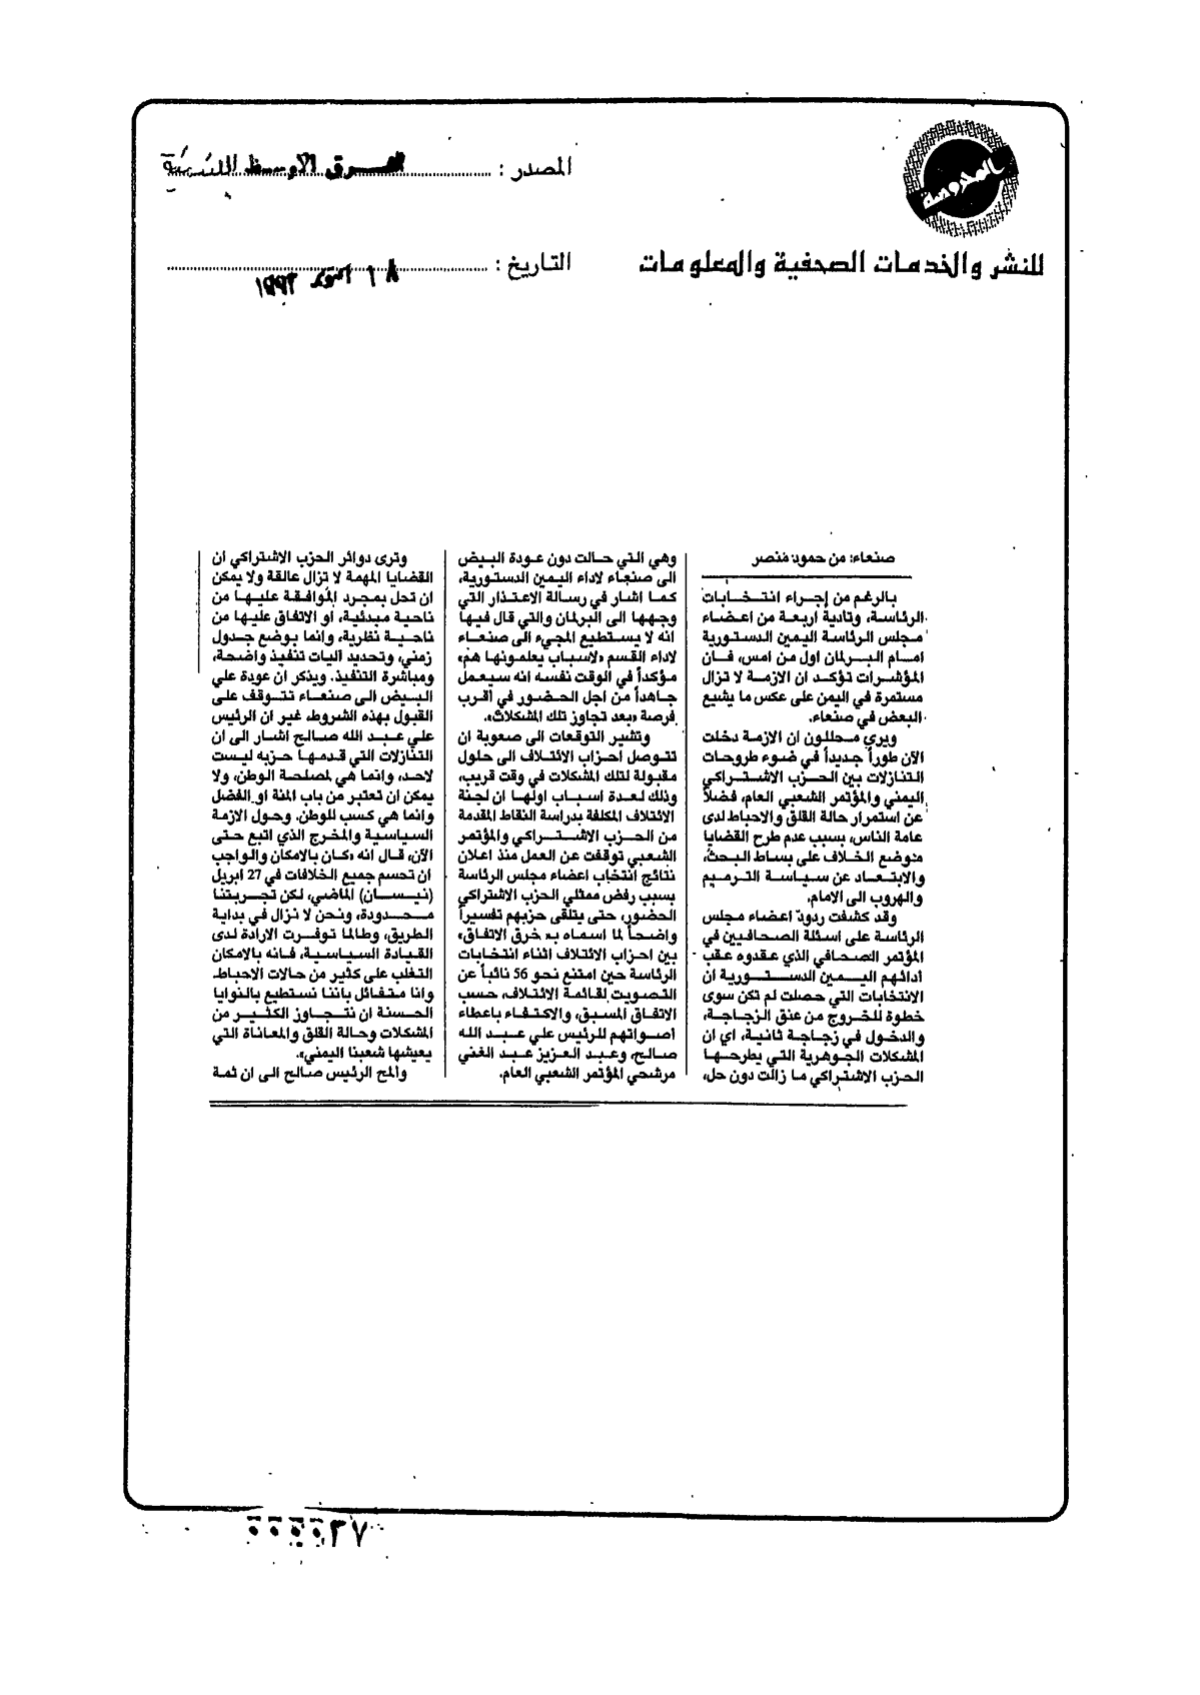 المدروسة
للنشر والخدمات الصحفية والمعلومات
المصدر : الشرق الأوسط اللندنية
التاريخ : ١٨ أكتوبر ١٩٩٣
صنعاء: من حمود منصر
بالرغم من إجراء انتخابات
الرئاسة، وتادية أربعة من اعضاء
مجلس الرئاسة اليمين الدستورية
امام البرلمان اول من امس، فان
المؤشرات تؤكد ان الازمة لا تزال
مستمرة في اليمن على عكس ما يشيع
البعض في صنعاء.
ويرى محللون ان الازمة دخلت
الآن طوراً جديداً في ضوء طروحات
التنازلات بين الحزب الاشتراكي
اليمني والمؤتمر الشعبي العام، فضلاً
عن استمرار حالة القلق والاحباط لدى
عامة الناس، بسبب عدم طرح القضايا
موضع الخلاف على بساط البحث،
والابتعاد عن سياسة الترميم
والهروب الى الامام.
وقد كشفت ردود اعضاء مجلس
الرئاسة على اسئلة الصحافيين في
المؤتمر الصحافي الذي عقدوه عقب
ادائهم اليمين الدستورية ان
الانتخابات التي حصلت لم تكن سوى
خطوة للخروج من عنق الزجاجة،
والدخول في زجاجة ثانية، اي ان
المشكلات الجوهرية التي يطرحها
الحزب الاشتراكي ما زالت دون حل،
وهي التي حالت دون عودة البيض
الى صنعاء لاداء اليمين الدستورية،
كما اشار في رسالة الاعتذار التي
وجهها الى البرلمان والتي قال فيها
انه لا يستطيع المجيء الى صنعاء
لاداء القسم «لاسباب يعلمونها هم»
مؤكداً في الوقت نفسه انه سيعمل
جاهداً من اجل الحضور في أقرب
فرصة «بعد تجاوز تلك المشكلات».
وتشير التوقعات الى صعوبة ان
تتوصل احزاب الائتلاف الى حلول
مقبولة لتلك المشكلات في وقت قريب،
وذلك لعدة اسباب اولها ان لجنة
الائتلاف المكلفة بدراسة النقاط المقدمة
من الحزب الاشتراكي والمؤتمر
الشعبي توقفت عن العمل منذ اعلان
نتائج انتخاب اعضاء مجلس الرئاسة
بسبب رفض ممثلي الحزب الاشتراكي
الحضور، حتى يتلقى حزبهم تفسيراً
واضحاً لما اسماه بـ«خرق الاتفاق»
بين احزاب الائتلاف اثناء انتخابات
الرئاسة حين امتنع نحو 56 نائباً عن
التصويت لقائمة الائتلاف، حسب
الاتفاق المسبق، والاكتفاء باعطاء
اصواتهم للرئيس علي عبد الله
صالح، وعبد العزيز عبد الغني
مرشحي المؤتمر الشعبي العام.
وترى دوائر الحزب الاشتراكي ان
القضايا المهمة لا تزال عالقة ولا يمكن
ان تحل بمجرد الموافقة عليها من
ناحية مبدئية، او الاتفاق عليها من
ناحية نظرية، وانما بوضع جدول
زمني، وتحديد آليات تنفيذ واضحة،
ومباشرة التنفيذ. ويذكر ان عودة علي
البيض الى صنعاء تتوقف على
القبول بهذه الشروط، غير ان الرئيس
علي عبد الله صالح اشار الى ان
التنازلات التي قدمها حزبه ليست
لاحد، وانما هي لمصلحة الوطن، ولا
يمكن ان تعتبر من باب المنة او الفضل
وانما هي كسب للوطن. وحول الازمة
السياسية والمخرج الذي اتبع حتى
الآن، قال انه «كان بالامكان والواجب
ان تحسم جميع الخلافات في 27 ابريل
(نيسان) الماضي، لكن تجربتنا
محدودة، ونحن لا نزال في بداية
الطريق، وطالما توفرت الارادة لدى
القيادة السياسية، فانه بالامكان
التغلب على كثير من حالات الاحباط.
وانا متفائل باننا نستطيع بالنوايا
الحسنة ان نتجاوز الكثير من
المشكلات وحالة القلق والمعاناة التي
يعيشها شعبنا اليمني».
والمح الرئيس صالح الى ان ثمة